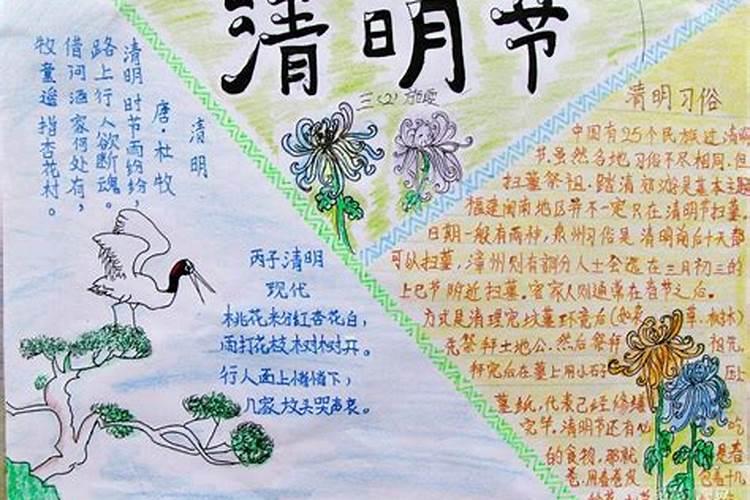 清明节
三(2)
清明
唐·杜牧
清明时节雨纷纷,
路上行人欲断魂。
借问酒家何处有,
牧童遥指杏花村。
丙子清明
现代
桃花粉红杏花白,
雨打花枝树树开。
行人面上悄悄下,
几家坟头哭声哀。
清明习俗
中国有25个民族过清明
节,虽然各地习俗不尽相同,但
扫墓祭祖、踏清郊游是基本主题
福建闽南地区并不一定只在清明节扫墓,
日期一般有两种,泉州习俗是清明前后十天都
可以扫墓,漳州则有部分人士会选在三月初三的
上巳节附近扫墓。客家人则通常在春节之后。
方式是清理完坟墓环境后(如 草、树木)
先祭拜土地公,然后祭拜 祖先
拜完后在墓上用小石 压上
墓纸,代表已经修缮
完毕。清明节还有 吃
的食物,那就 是春
卷,用春卷皮 包着十几